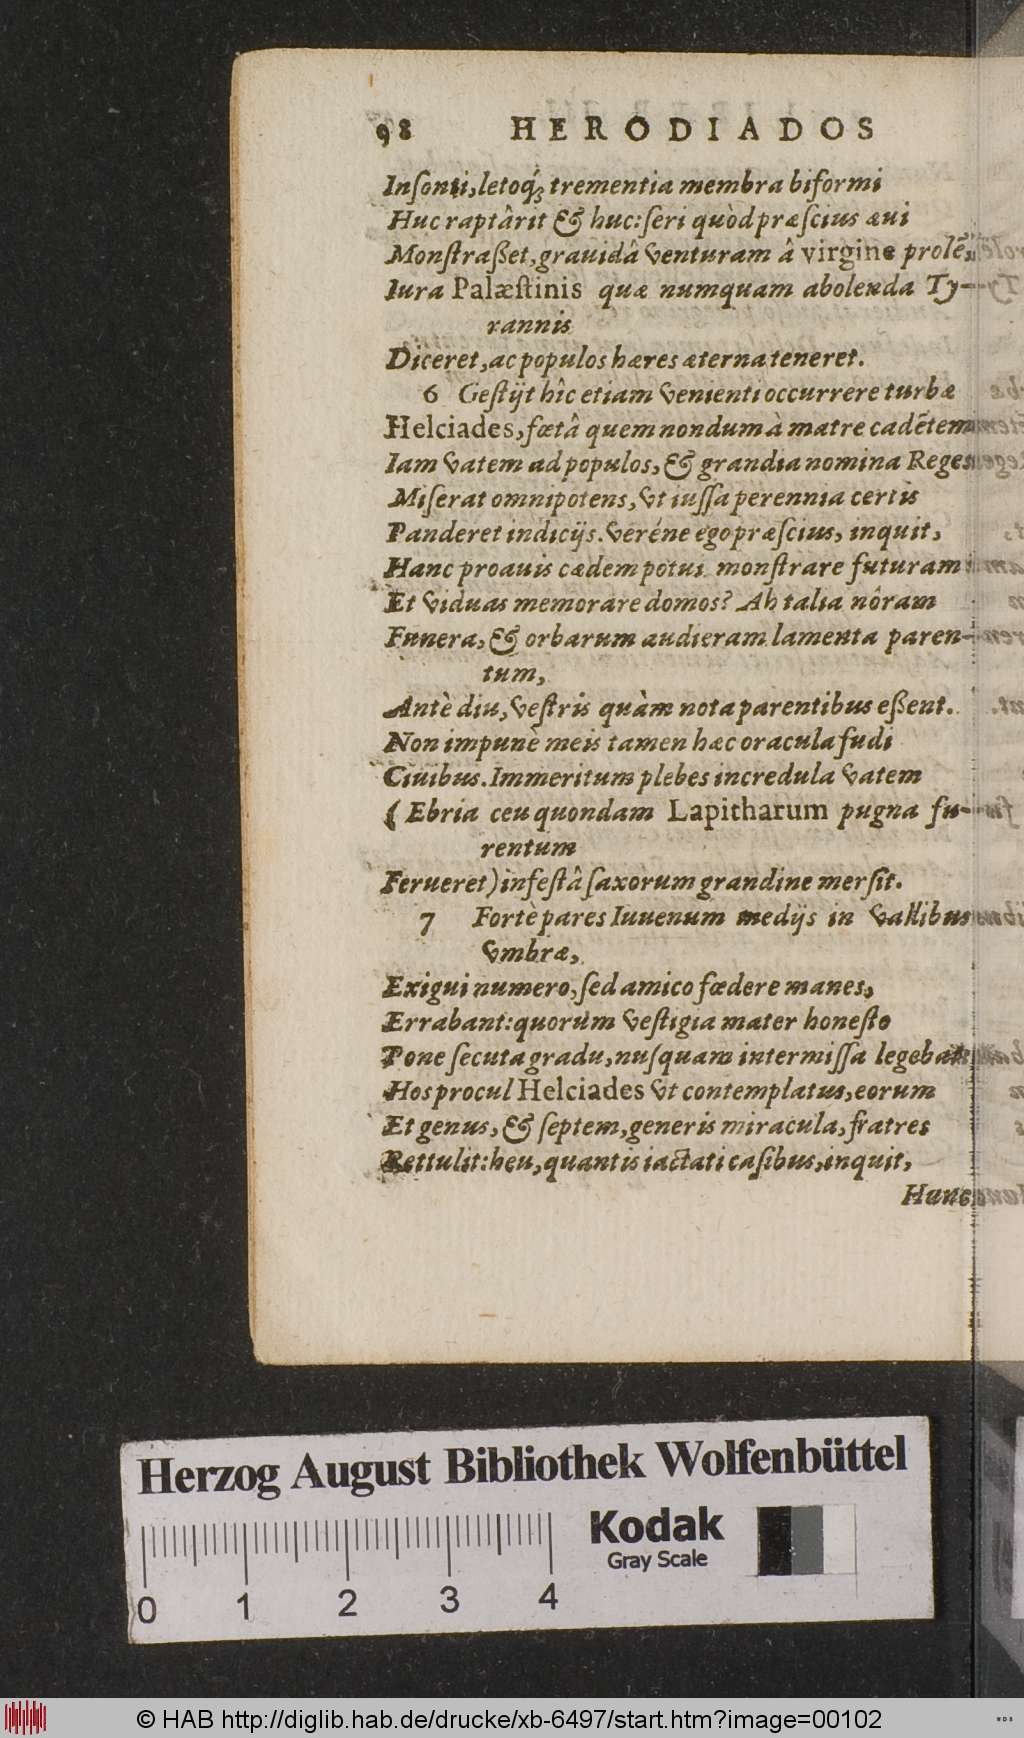 98 HERODIADOS
Inſonti, letoq́; trementia membra biformi
Huc raptârit & huc: ſeri quòd præſcius ævi
Monſtraßet, grauidâ venturam â virgine prolē,
Iura Palæſtinis quæ numquam abolenda Ty-
rannis
Diceret, ac populos hæres æterna teneret.
6 Geſtÿt hîc etiam venienti occurrere turbæ
Helciades, fœtâ quem nondum à matre cadētem
Iam vatem ad populos, & grandia nomina Reges
Miſerat omnipotens, vt iuſſa perennia certis
Panderet indicÿs. veréne ego præſcius, inquit,
Hanc proauis cædem potui monſtrare futuram
Et viduas memorare domos? Ah talia nôram
Funera, & orbarum audieram lamenta paren-
tum,
Antè diu, veſtris quàm nota parentibus eßent.
Non impunè meis tamen hæc oracula fudi
Ciuibus. Immeritum plebes incredula vatem
(Ebria ceu quondam Lapitharum pugna fu-
rentum
Ferueret) infeſtâ ſaxorum grandine merſit.
7 Fortè pares Iuuenum medÿs in vallibus
vmbræ,
Exigui numero, ſed amico fœdere manes,
Errabant: quorúm veſtigia mater honeſto
Pone ſecuta gradu, nuſquam intermiſſa legebat
Hos procul Helciades vt contemplatus, eorum
Et genus, & ſeptem, generis miracula, fratres
Rettulit: heu, quantis iactati caſibus, inquit,
Hunc
Herzog August Bibliothek Wolfenbüttel
Kodak
Gray Scale
0 1 2 3 4
© HAB http://diglib.hab.de/drucke/xb-6497/start.htm?image=00102